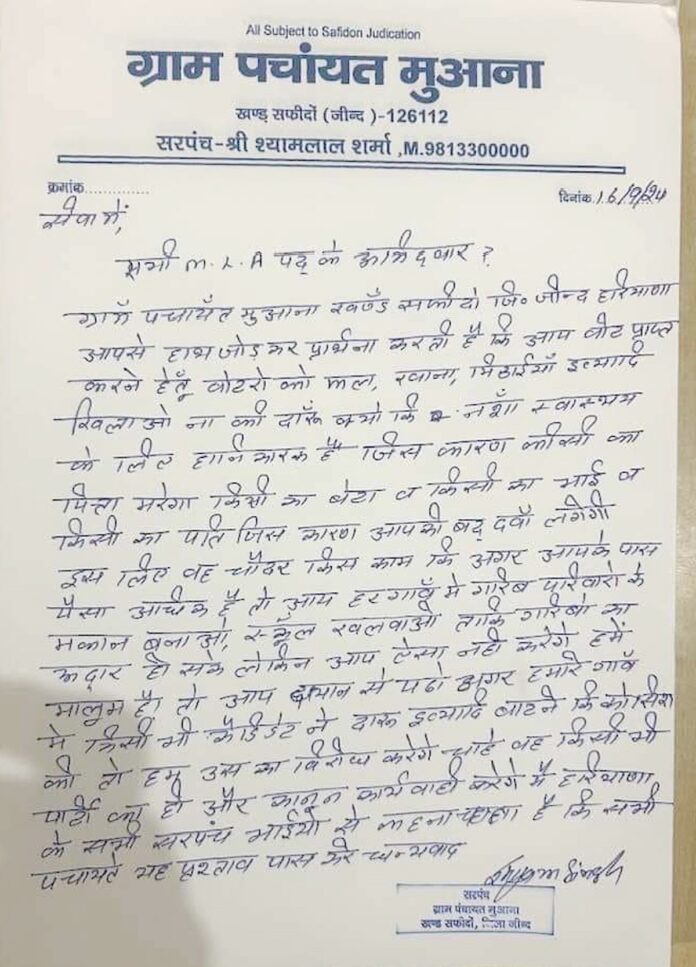 All Subject to Safidon Judication
ग्राम पचांयत मुआना
खण्ड सफीदों (जीन्द )-126112
सरपंच-श्री श्यामलाल शर्मा ,M.9813300000
क्रमांक..............
दिनांक 16/9/24
सेवा में,
सभी M.L.A पद के उम्मिदवार ?
ग्राम पचायँत मुआना खण्ड सफीदो जि० जीन्द हरियाणा
आपसे हाथ जोड़ कर प्रार्थना करती है कि आप वोट प्राप्त
करने हेतूँ वोटरो को फल, खाना, मिठाईयाँ इत्यादि
खिलाओ ना की दारू क्यो कि नशाँ स्वास्थय
के लिए हानिकारक है जिस कारण कीसी का
पित्ता मरेगा किसी का बेटा व किसी का भाई व
किसी का पति जिस कारण आपको बद्दवाँ लगेगी
इस लिए वह चौदर किस काम कि अगर आपके पास
पैसा अधिक है तो आप हर गाँव मे गरिब परिवारो के
मकान बनाओ, स्कूँल खलवाओ ताकि गारिबो का
उद्दार हो सके लेकिन आप ऐसा नही करेगे हमें
मालुम है। तो आप ध्यान से पढो अगर हमारे गाँव
मे किसी भी कैडिडेट ने दारू इत्यादि बाटने कि कोसिश
की तो हम उस का विरोध करेगे चाहे वह किसी भी
पार्टी का हो और कानून कार्यवाही करेगे मै हरियाणा
के सभी सरपंच भाईयो से कहना चाहता है कि सभी
पचायते यह प्रस्ताव पास करे धन्यवाद
सरपंच
ग्राम पंचायत मुआना
खण्ड सफीदों, जिला जीन्द